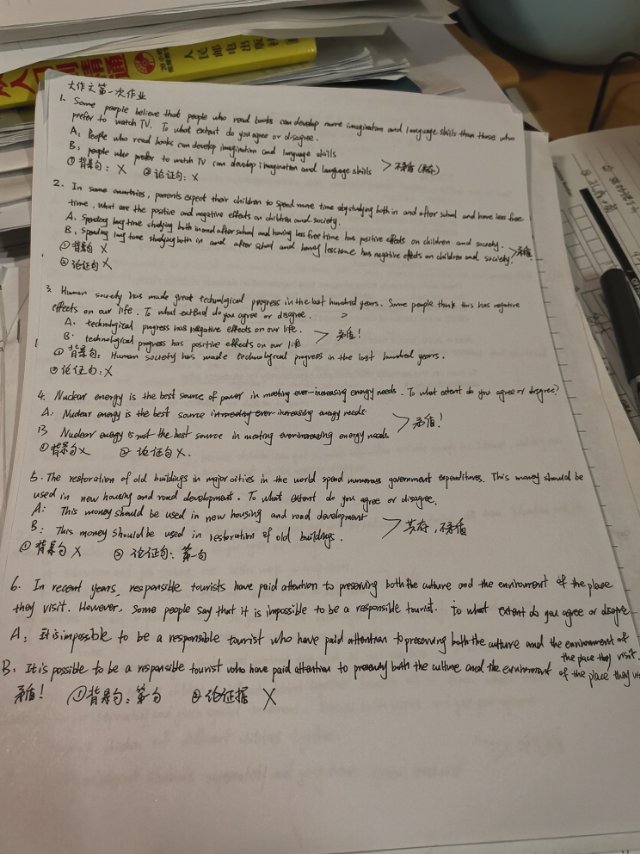 人民邮电出版
大作文第一次作业
1. Some people believe that people who read books can develop more imagination and language skills than those who
prefer to watch TV. To what extent do you agree or disagree.
A: People who read books can develop imagination and language skills
B: people who prefer to watch TV can develop imagination and language skills > 不矛盾
① 背景句: X ② 论证句: X
2. In some countries, parents expect their children to spend more time studying both in and after school and have less free
time, what are the positive and negative effects on children and society.
A. Spending long time studying both in and after school and having less free time has positive effects on children and society.
B. Spending long time studying both in and after school and having less time has negative effects on children and society. >
① 背景句 X
② 论证句 X
3. Human society has made great technological progress in the last hundred years. Some people think this has negative
effects on our life. To what extend do you agree or disagree.
A. technological progress has negative effects on our life.
B. technological progress has positive effects on our life > 矛盾!
① 背景句: Human society has made technological progress in the last hundred years.
② 论证句: X
4. Nuclear energy is the best source of power in meeting ever-increasing energy needs. To what extent do you agree or disagree?
A: Nuclear energy is the best source in meeting ever-increasing energy needs
B Nuclear energy is not the best source in meeting ever increasing energy needs. > 矛盾!
① 背景句 X ② 论证句 X.
5. The restoration of old buildings in major cities in the world spend numerous government expenditures. This money should be
used in new housing and road development. To what extent do you agree or disagree.
A: This money should be used in new housing and road development
B: This money should be used in restoration of old buildings. > 共存,不矛盾
① 背景句 X ② 论证句: 第一句
6. In recent years, responsible tourists have paid attention to preserving both the culture and the environment of the place
they visit. However, some people say that it is impossible to be a responsible tourist. To what extent do you agree or disagree
A: It is impossible to be a responsible tourist who have paid attention to preserving both the culture and the environment of
the place they visit.
B: It is possible to be a responsible tourist who have paid attention to preserving both the culture and the environment of the place they
矛盾! ① 背景句: 第一句 ② 论证据 X